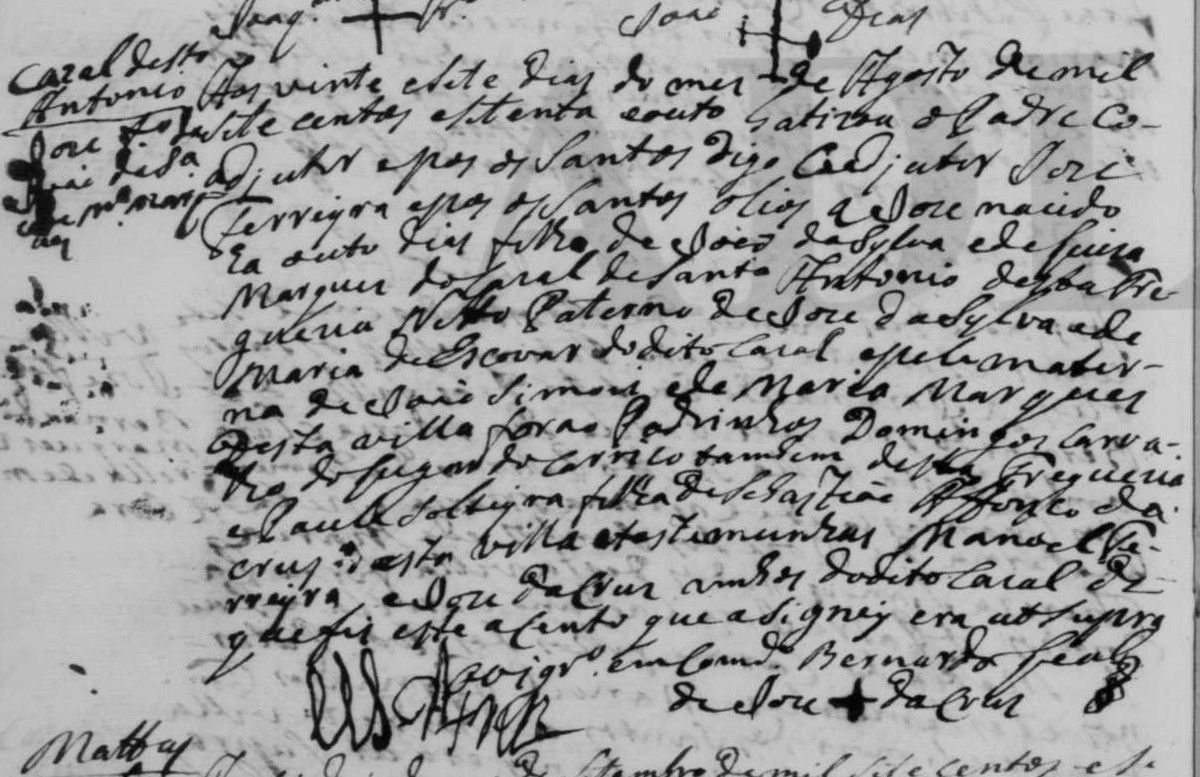 Joaq.
José
Dias
Cazal de sto
Antonio
José fo de
João da Sa
e de ma Marq
ues
Aos vinte e sete dias do mes de Agosto de mil
sete centos e setenta e outo Batizou o Padre Co-
adjutor e pos os santos digo Coadjutor José
Ferreyra e pos os santos olios a José nacido
ha outo dias filho de João da Sylva e de Luiza
Marques do Cazal de Santo Antonio desta Fre-
guezia Netto Paterno de José da Sylva e de
Maria de Escovar do dito Cazal e pela mater-
na de João Simois e de Maria Marques
desta villa forão Padrinhos Domingos Carva-
lho do lugar do Carriço tambem desta Freguezia
e Paula solteyra filha de Sebastião Affonço da
Crus desta villa e testemunhas Manoel Fe-
rreyra e José da Crus ambos do dito Cazal de
que fis este acento que asigney era ut supra
o vigro emComdo Bernardo Leal
de José + da Crus
Mattheus
de Setembro de mil sete centos e se